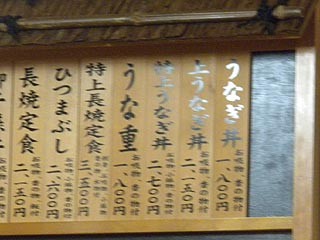 うなぎ丼
お吸物・香の物付
一、八〇〇円
上うなぎ丼
お吸物・香の物付
二、一五〇円
特上うなぎ丼
お吸物・小鉢物・香の物付
二、七〇〇円
うな重
お吸物・香の物付
一、八〇〇円
特上長焼定食
三、五〇〇円
ひつまぶし
お吸物・小鉢物・香の物付
二、六〇〇円
長焼定食
お吸物・香の物付
二、一五〇円